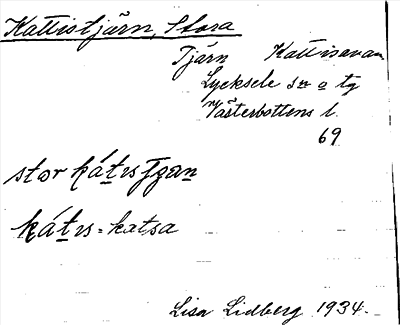 Kattistjärn, Stora
Tjärn Kattisavan
Lycksele sn o tg
Västerbottens l.
69
stor kát̲ɩs
kát̲ɩs = katsa
Lisa Lidberg 1934.